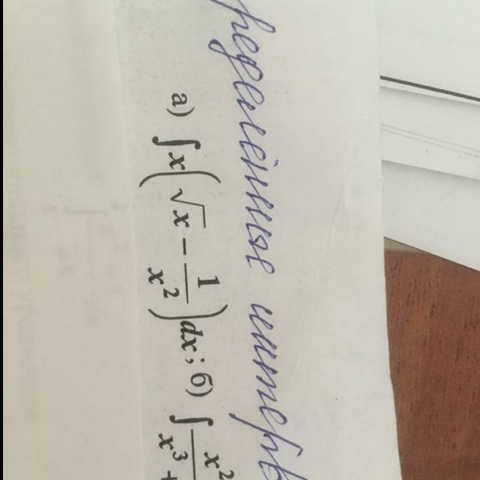 ределённые интегра
а) ∫x(√x − 1/x²)dx; б) ∫ x²/x³ +